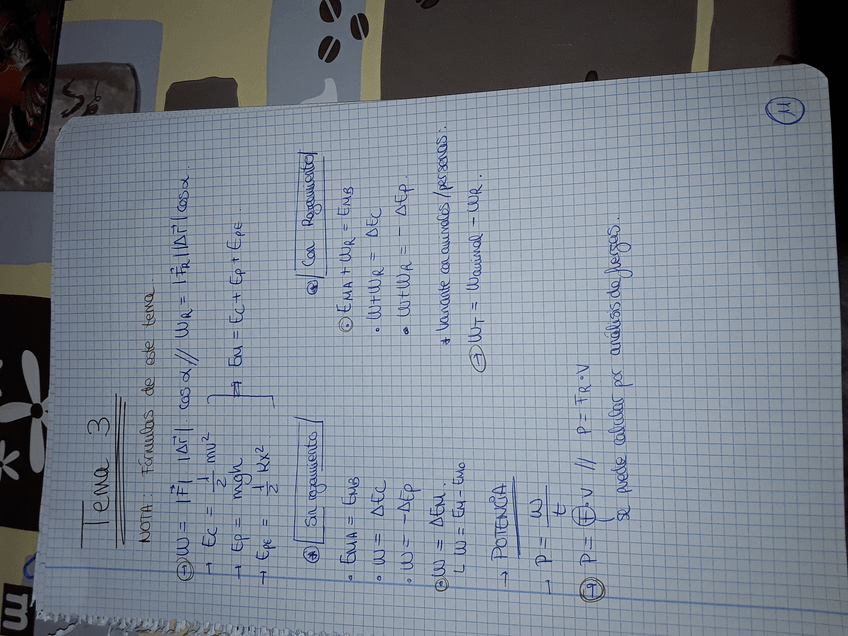 Tema 3
NOTA: Fórmulas de este tema.
→ W = |F⃗| |Δr⃗| cos α // WR = |F⃗R| |Δr⃗| cos α.
→ Ec = 1/2 mv²
→ Ep = mgh
⇒ EM = Ec + Ep + EPE
→ EPE = 1/2 Kx²
* Sin rozamiento
• EMA = EMB
• W = ΔEC
• W = -ΔEp
• W = ΔEM.
↳ W = EM - EMo
* Con Rozamiento
• EMA + WR = EMB
• W + WR = ΔEC
• W + WR = - ΔEp.
* Variante con animales/personas:
→ WT = Wanimal - WR.
→ POTENCIA
→ P = W/t
→ P = F·V // P = FR·V
Se puede calcular por análisis de fuerzas.
11
m